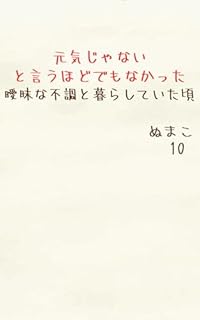 元気じゃない
と言うほどでもなかった
曖昧な不調と暮らしていた頃
ぬまこ
10